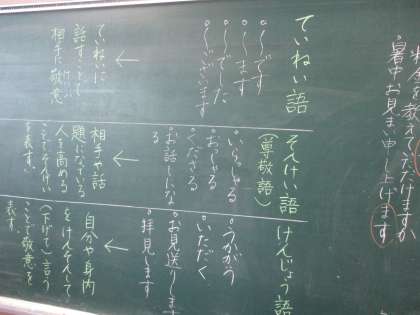 米を教えてください
暑中お見まい申し上げます
ていねい語
○〜です
○〜ます
○〜でした
○〜ございます
←
ていねいに
話すことで
相手に敬意
そんけい語
(尊敬語)
○いらっしゃる
○おっしゃる
○くださる
○お話しになる
←
相手や話
題になっている
人を高める
ことでそんけい
を表す。
けんじょう語
○うかがう
○いただく
○お見送りしま
○拝見します
←
自分や身内
をけんそんして
(下げて)言う
ことで敬意を
表す。